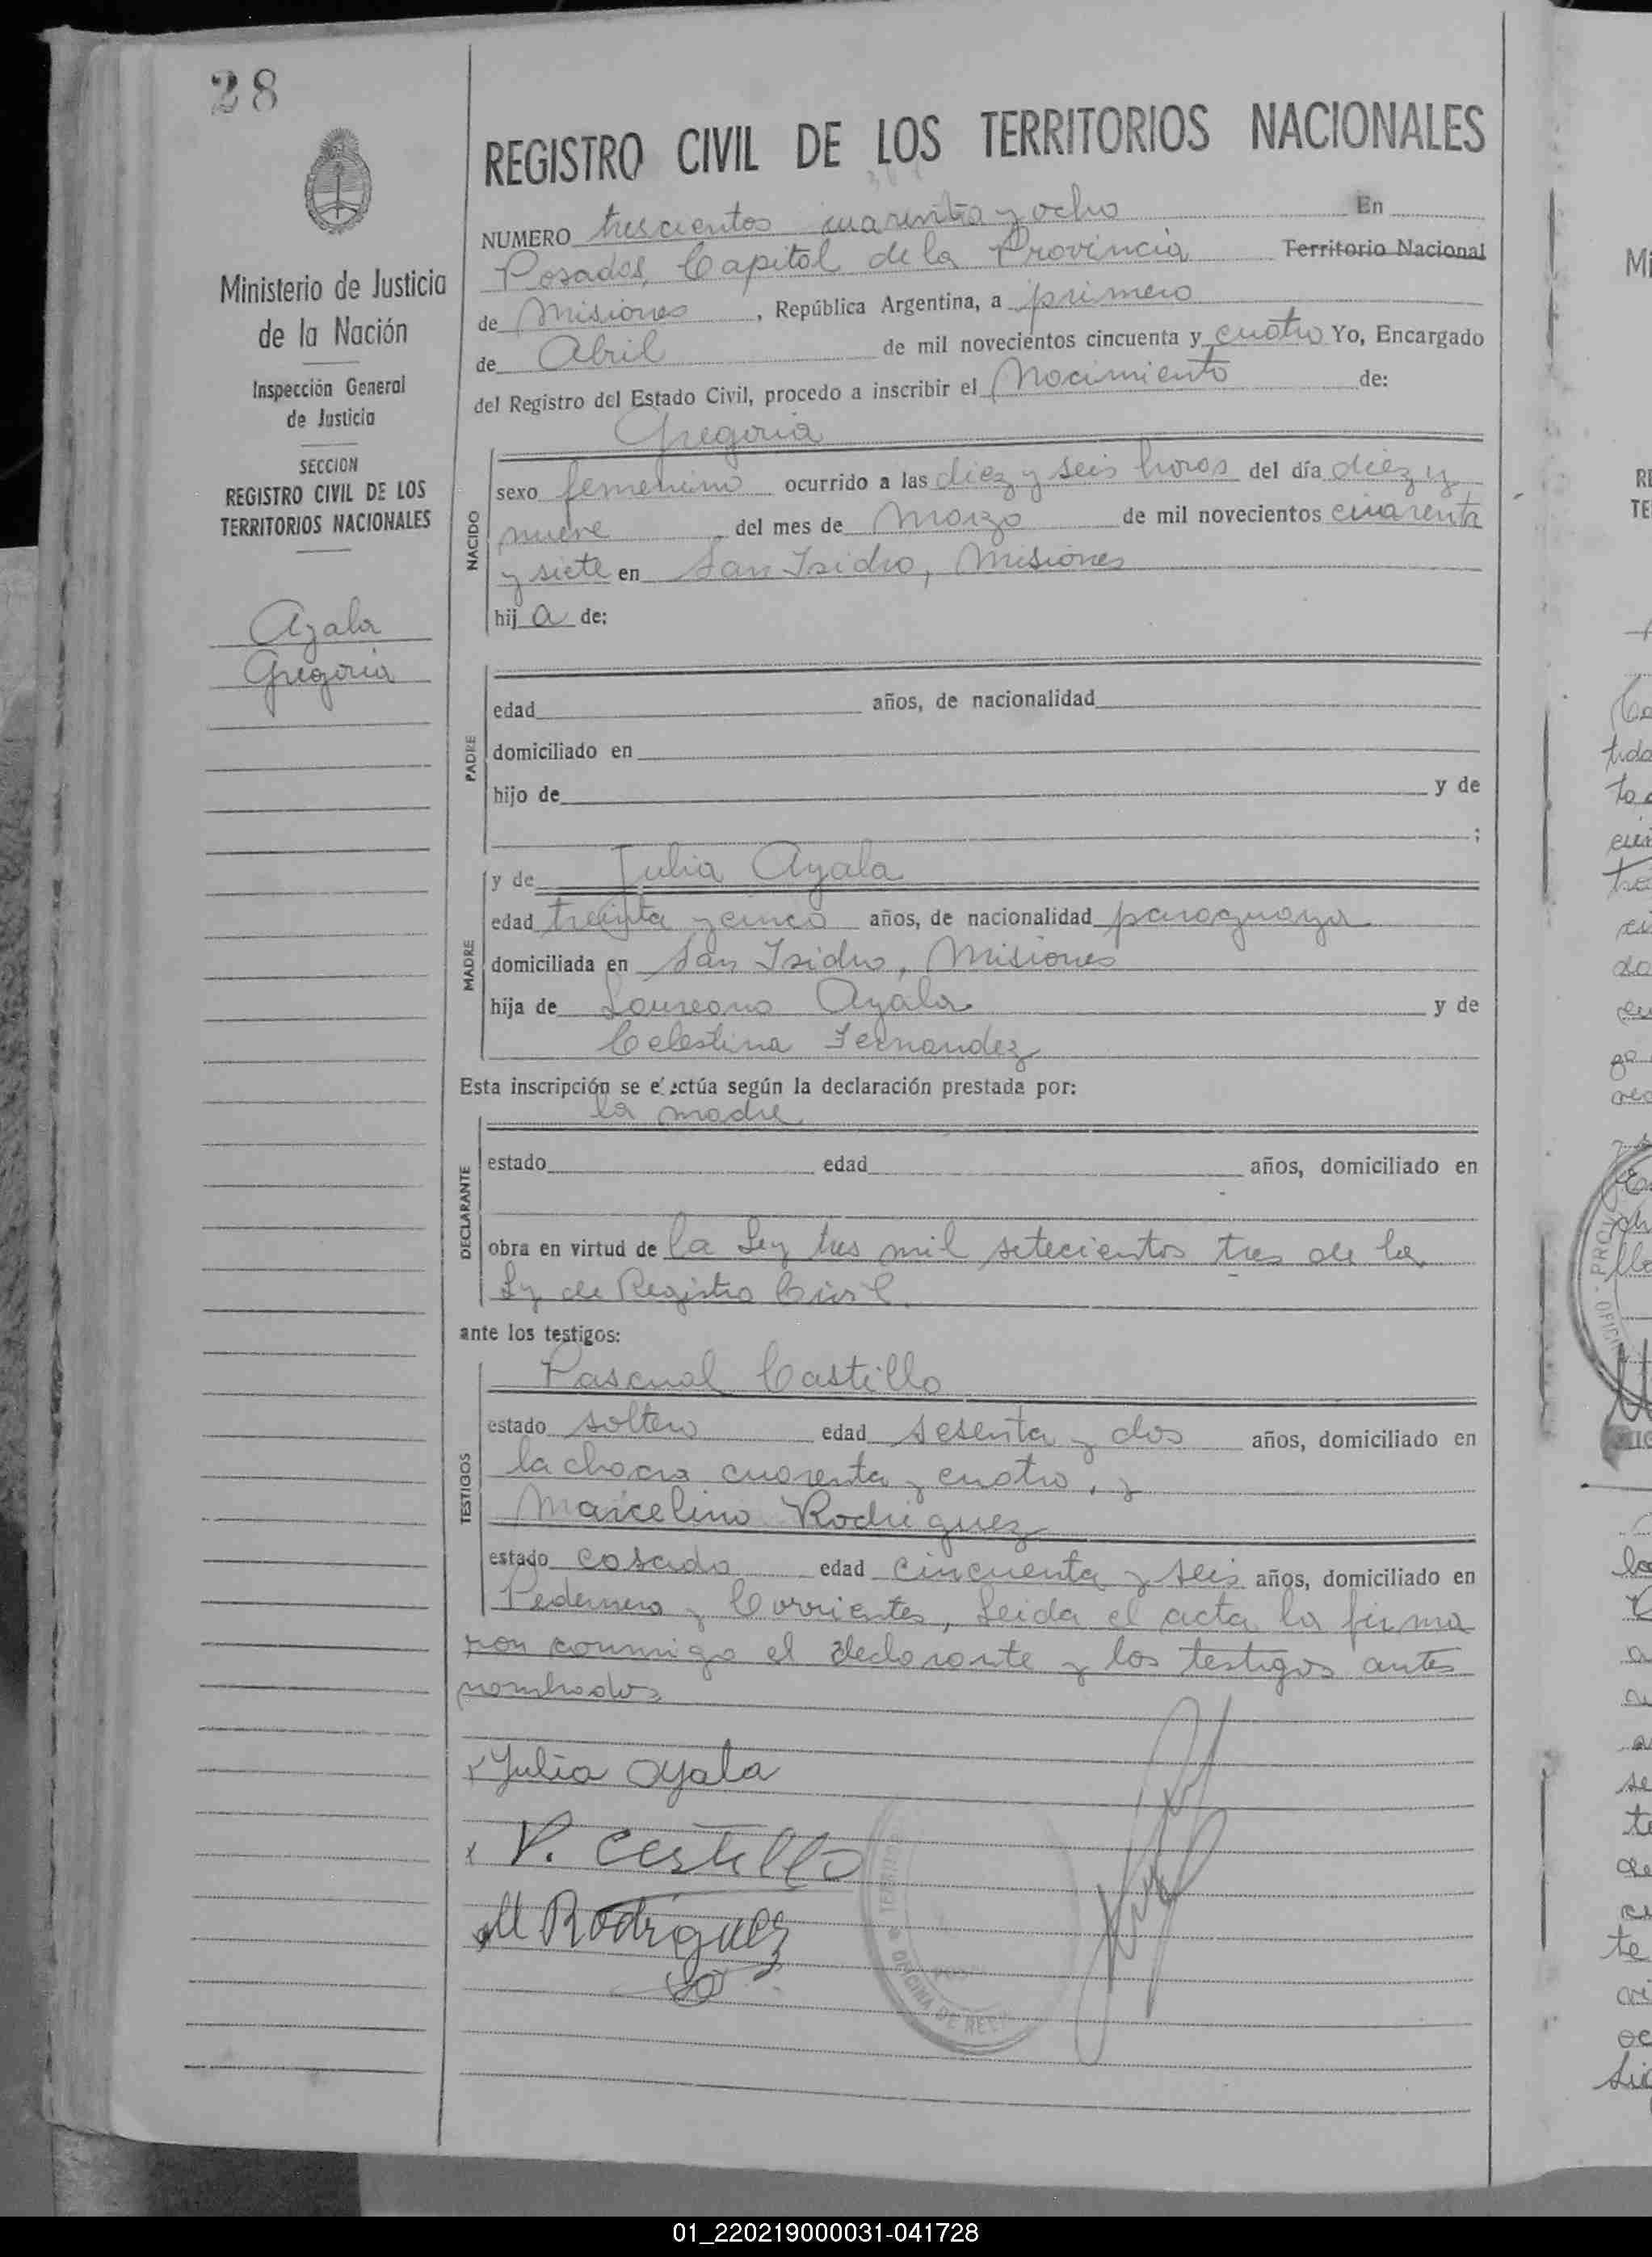 28
REGISTRO CIVIL DE LOS TERRITORIOS NACIONALES
Ministerio de Justicia
de la Nación
Inspección General
de Justicia
SECCION
REGISTRO CIVIL DE LOS
TERRITORIOS NACIONALES
Ayala
Gregoria
NUMERO trescientos cuarenta y ocho En
Posadas, Capital de la Provincia Territorio Nacional
de Misiones, República Argentina, a primero
de Abril de mil novecientos cincuenta y cuatro Yo, Encargado
del Registro del Estado Civil, procedo a inscribir el Nacimiento de:
Gregoria
NACIDO
sexo femenino ocurrido a las diez y seis horas del día diez y
nueve del mes de Marzo de mil novecientos cuarenta
y siete en San Isidro, Misiones
hij a de:
PADRE
edad años, de nacionalidad
domiciliado en
hijo de y de
;
MADRE
y de Julia Ayala
edad treinta y cinco años, de nacionalidad paraguaya
domiciliada en San Isidro, Misiones
hija de Laureano Ayala y de
Celestina Fernandez
Esta inscripción se efectúa según la declaración prestada por:
la madre
DECLARANTE
estado edad años, domiciliado en
obra en virtud de la Ley tres mil setecientos tres de la
Ley de Registro Civil.
ante los testigos:
TESTIGOS
Pascual Castillo
estado soltero edad sesenta y dos años, domiciliado en
la chacra cuarenta y cuatro, y
Marcelino Rodriguez
estado casado edad cincuenta y seis años, domiciliado en
Pedernera y Corrientes, Leida el acta la firma
ron conmigo el declarante y los testigos antes
nombrados
Julia Ayala
P. Castillo
M Rodriguez
OFICINA DE
01_220219000031-041728